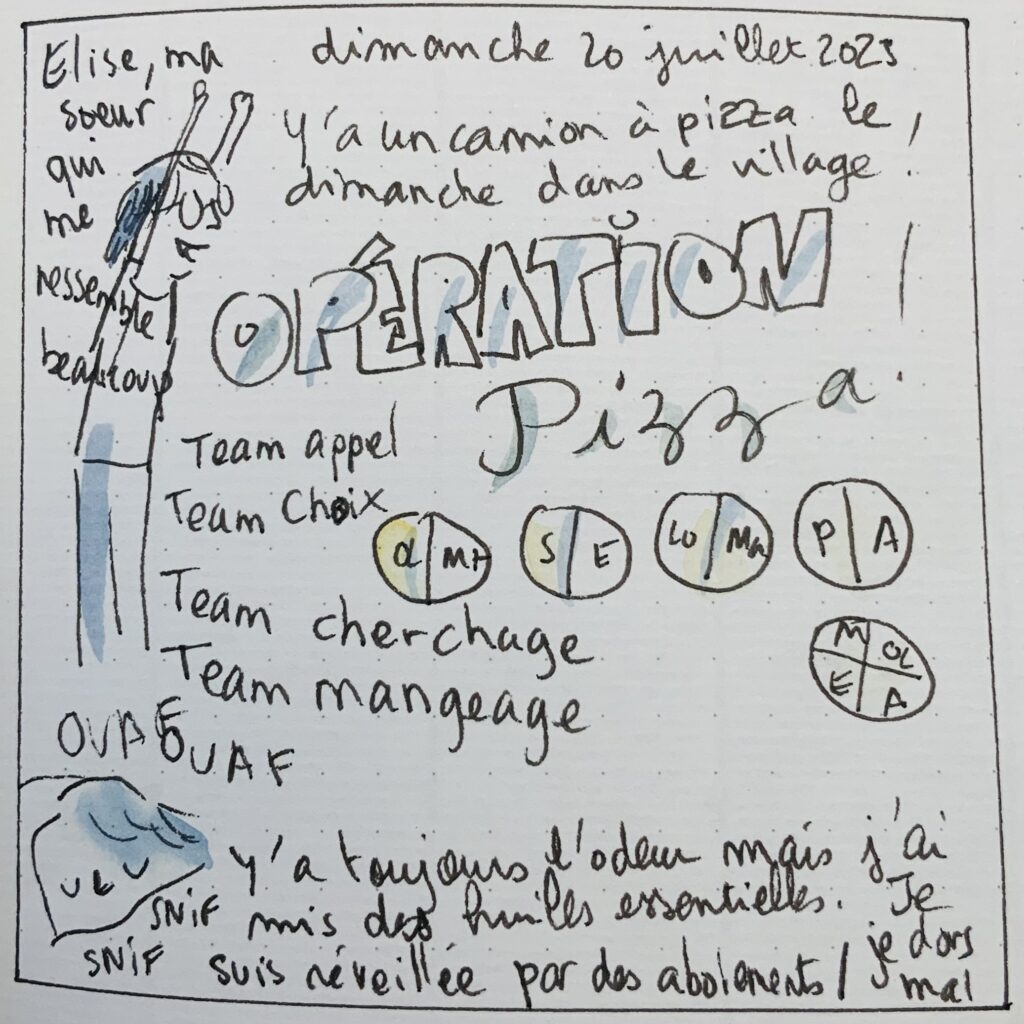 Elise, ma
soeur
qui
me
ressemble
beaucoup
dimanche 20 juillet 2025
Y'a un camion à pizza le
dimanche dans le village !
OPÉRATION
Pizza !
Team appel
Team choix
Team cherchage
Team mangeage
S E
Lo Ma
P A
M OL
E A
OUAF
OUAF
SNIF
SNIF
Y'a toujours l'odeur mais j'ai
mis des huiles essentielles. Je
suis réveillée par des aboiements /
je dors
mal